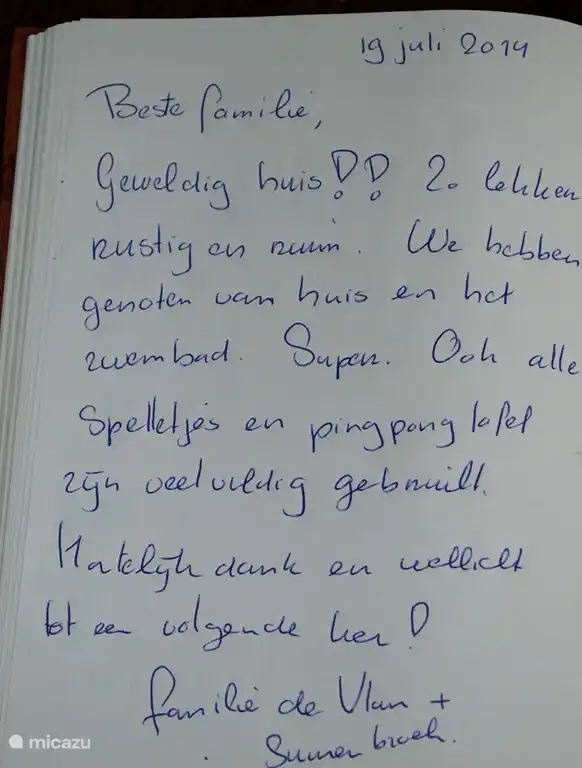 19 juli 2014
Beste familie,
Geweldig huis!! Zo lekker
rustig en ruim. We hebben
genoten van huis en het
zwembad. Super. Ook alle
Spelletjes en pingpong tafel
zijn veelvuldig gebruikt.
Hartelijk dank en wellicht
tot een volgende keer!
familie de Vlan +
micazu